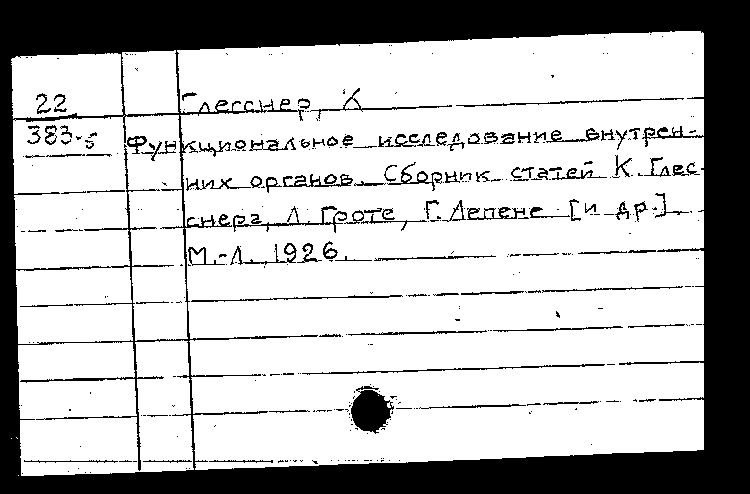 22
383-5
Глесснер, К
Функциональное исследование внутрен-
них органов. Сборник статей К. Глес-
снера, Л. Гроте, Г. Лепене [и др.].
М.-Л., 1926.